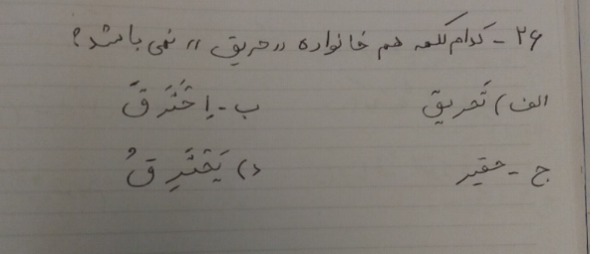 ۲۶ - کدام کلمه هم خانواده «حریق» نمی باشد؟
الف) تَحریق ب - اِحْتَرَقَ
ج - حقیر د) یَحْتَرِقُ